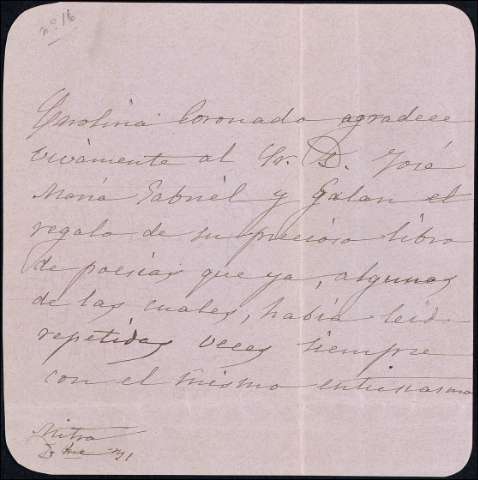 nº 16
Carolina Coronado agradece
vivamente al Sr. D. José
María Gabriél y Galan el
regalo de su precioso libro
de poesías que ya, algunas
de las cuales, había leido
repetidas veces siempre
con el mismo entusiasmo
Mitra